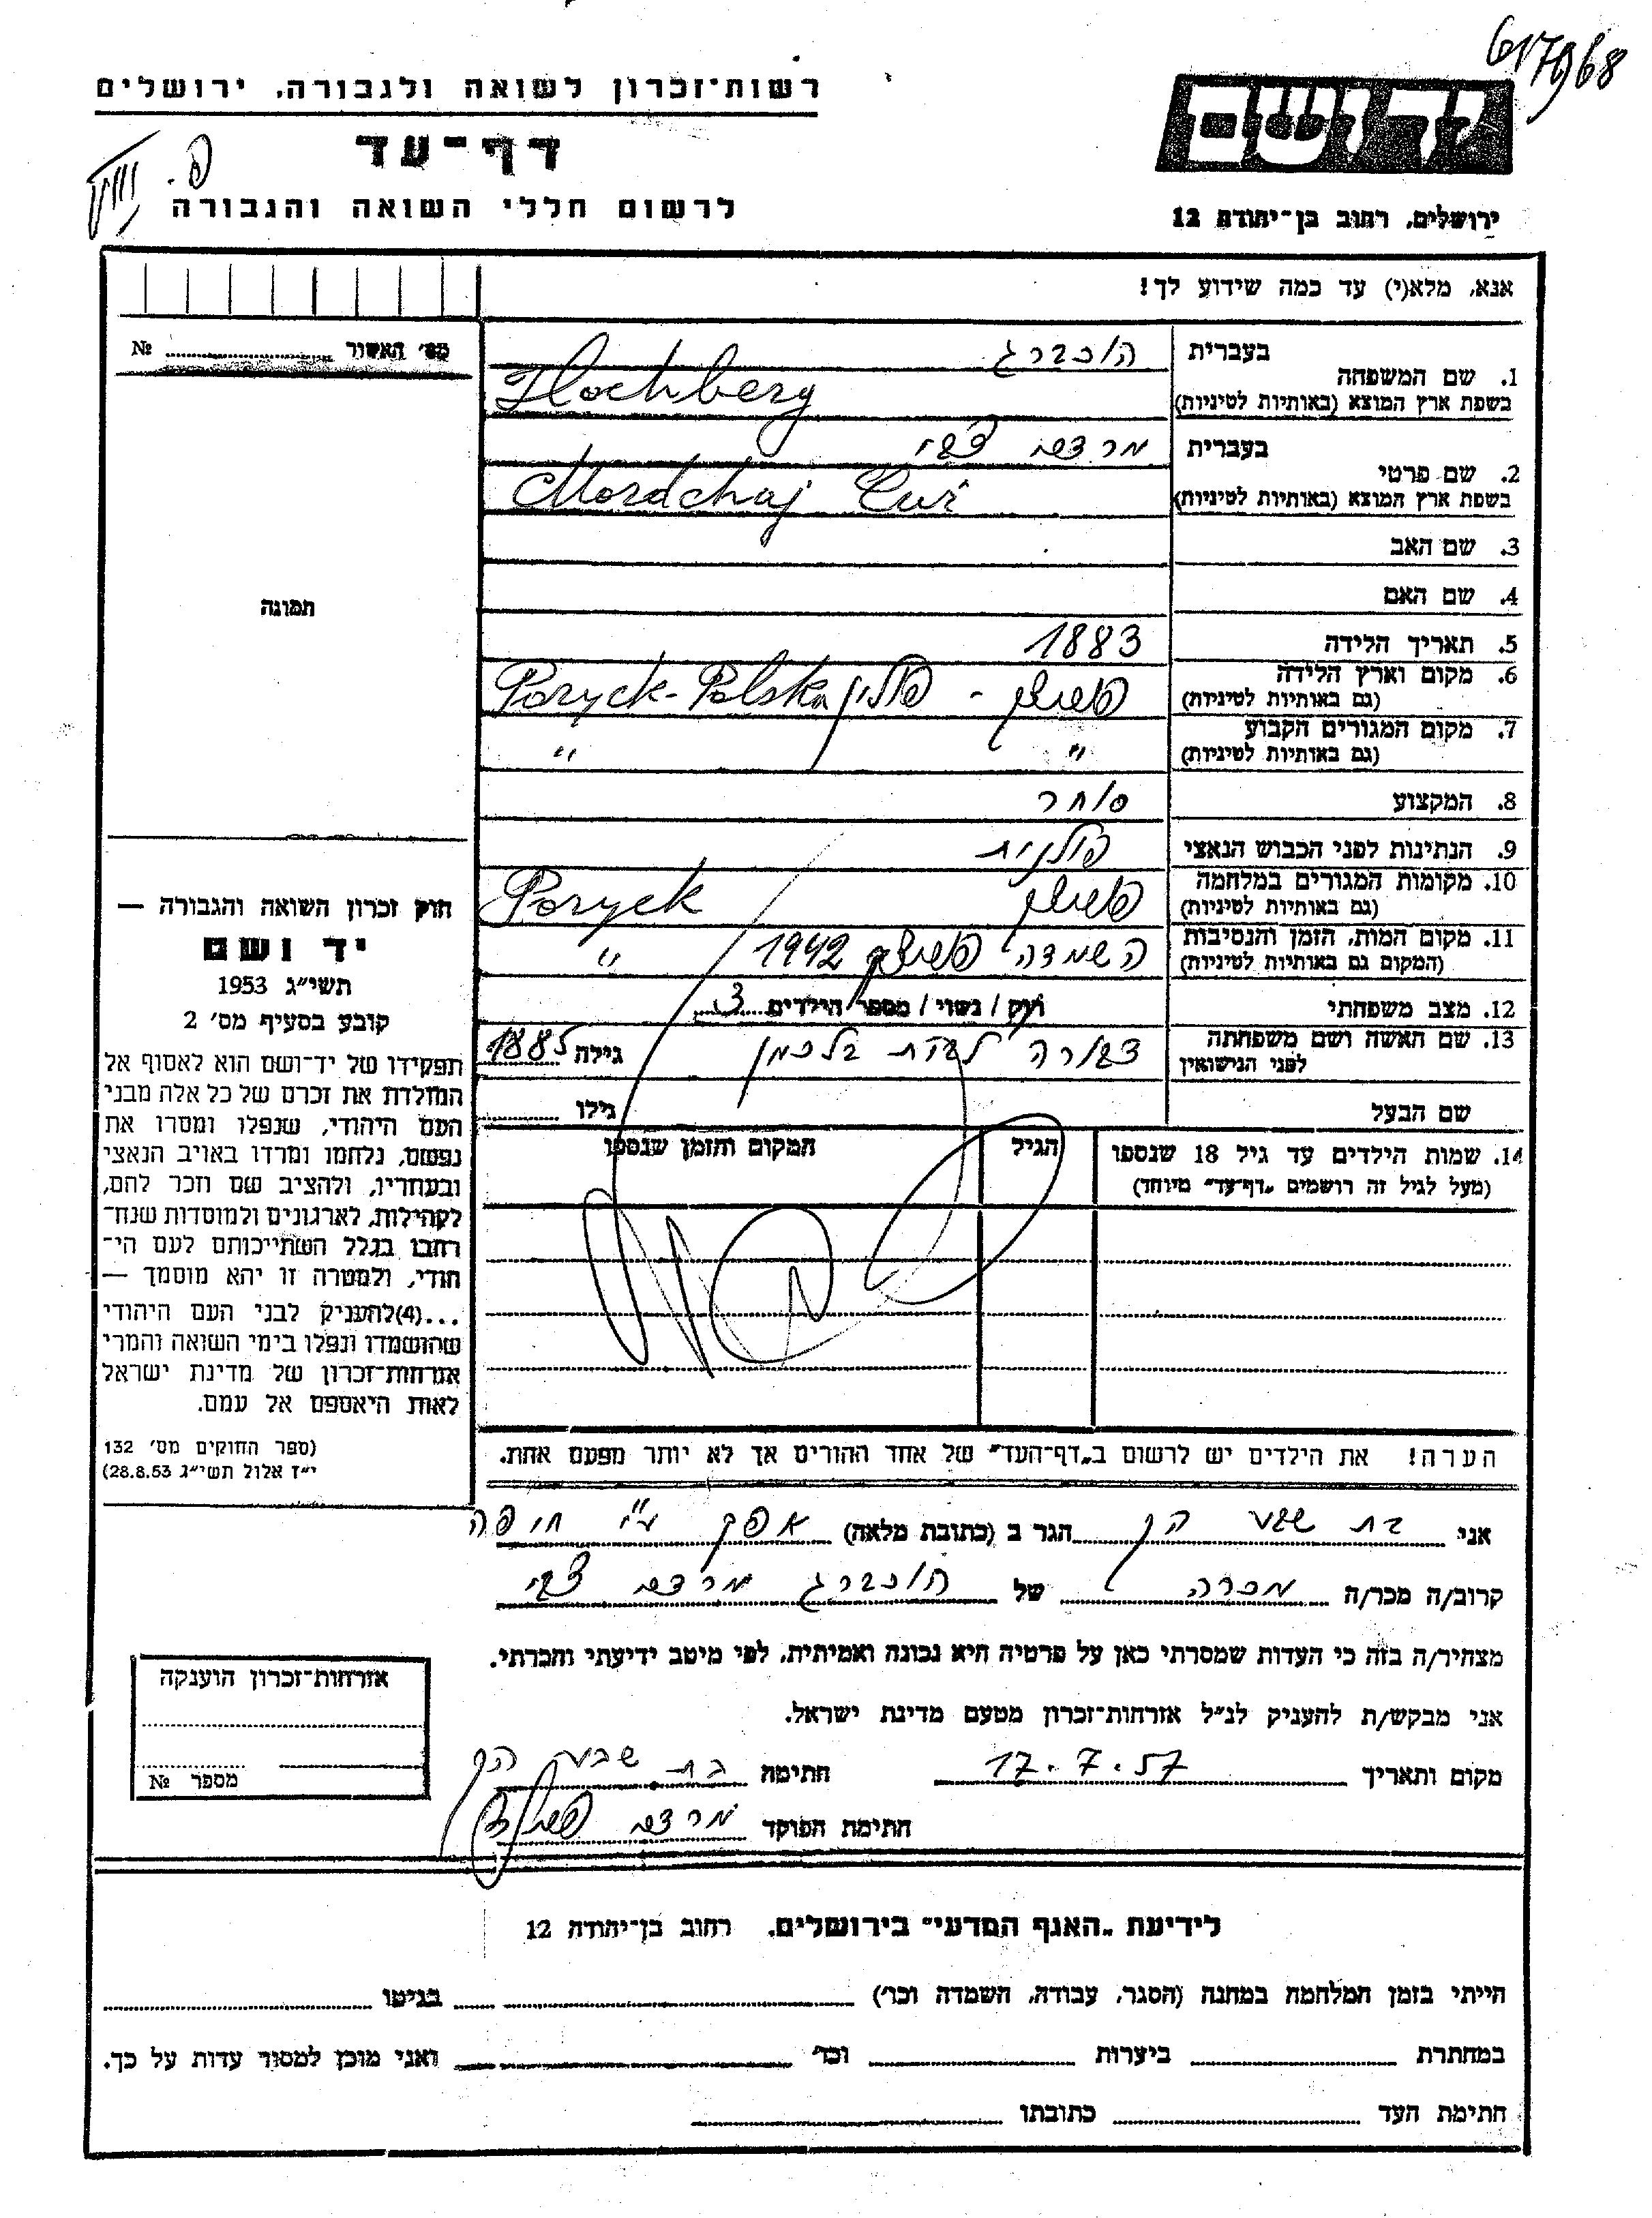 617968
רשות־זכרון לשואה ולגבורה, ירושלים
יד ושם
דף־עד
פ.
לרשום חללי השואה והגבורה
ירושלים, רחוב בן־יהודה 12
אנא, מלא(י) עד כמה שידוע לך!
מס׳ האשור ........ №
1. שם המשפחה
בעברית הוכברג
בשפת ארץ המוצא (באותיות לטיניות) Hochberg
2. שם פרטי
בעברית מרדכי צבי
בשפת ארץ המוצא (באותיות לטיניות) Mordchaj Cwi
3. שם האב
4. שם האם
תמונה
5. תאריך הלידה 1883
6. מקום וארץ הלידה
(גם באותיות לטיניות) פוריצק - פולין Poryck-Polska
7. מקום המגורים הקבוע
(גם באותיות לטיניות) " "
8. המקצוע סוחר
9. הנתינות לפני הכבוש הנאצי פולנית
10. מקומות המגורים במלחמה
(גם באותיות לטיניות) פוריצק Poryck
11. מקום המות, הזמן והנסיבות
(המקום גם באותיות לטיניות) השמדה פוריצק 1942 "
12. מצב משפחתי רווק / נשוי / מספר הילדים 3
13. שם האשה ושם משפחתה
לפני הנשואין לבית גילה 1885
שם הבעל גילו ........
14. שמות הילדים עד גיל 18 שנספו
(מעל לגיל זה רושמים „דף־עד" מיוחד)
הגיל
המקום והזמן שנספו
הערה! את הילדים יש לרשום ב„דף־העד" של אחד ההורים אך לא יותר מפעם אחת.
חוק זכרון השואה והגבורה —
יד ושם
תשי״ג 1953
קובע בסעיף מס׳ 2
תפקידו של יד־ושם הוא לאסוף אל
המולדת את זכרם של כל אלה מבני
העם היהודי, שנפלו ומסרו את
נפשם, נלחמו ומרדו באויב הנאצי
ובעוזריו, ולהציב שם וזכר להם,
לקהילות, לארגונים ולמוסדות שנח־
רבו בגלל השתייכותם לעם הי־
הודי, ולמטרה זו יהא מוסמך —
...(4)להעניק לבני העם היהודי
שהושמדו ונפלו בימי השואה והמרי
אזרחות־זכרון של מדינת ישראל
לאות היאספם אל עמם.
(ספר החוקים מס׳ 132
י״ז אלול תשי״ג 28.8.53)
אני בת שבע הגר ב (כתובת מלאה) אפק ע״י חיפה
קרוב/ה מכר/ה מכרה של הוכברג מרדכי צבי
מצהיר/ה בזה כי העדות שמסרתי כאן על פרטיה היא נכונה ואמיתית, לפי מיטב ידיעתי והכרתי.
אני מבקש/ת להעניק לנ״ל אזרחות־זכרון מטעם מדינת ישראל.
מקום ותאריך 17.7.57 חתימה בת שבע
חתימת הפוקד מרדכי
אזרחות־זכרון הוענקה
מספר №
לידיעת „האגף המדעי" בירושלים, רחוב בן־יהודה 12
הייתי בזמן המלחמה במחנה (הסגר, עבודה, השמדה וכו׳) ........ בגיטו ........
במחתרת ........ ביערות ........ וכו׳ ........ ואני מוכן למסור עדות על כך.
חתימת העד ........ כתובתו ........